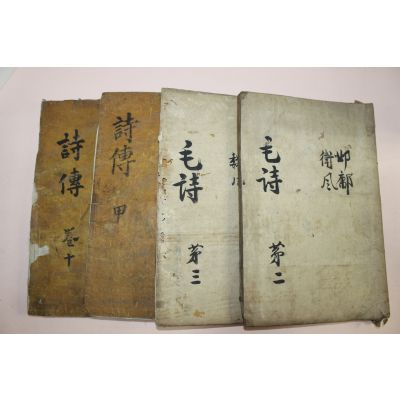 詩傳
卷十
詩傳
甲
毛詩
第三
毛詩
第二
邶鄘
衛风